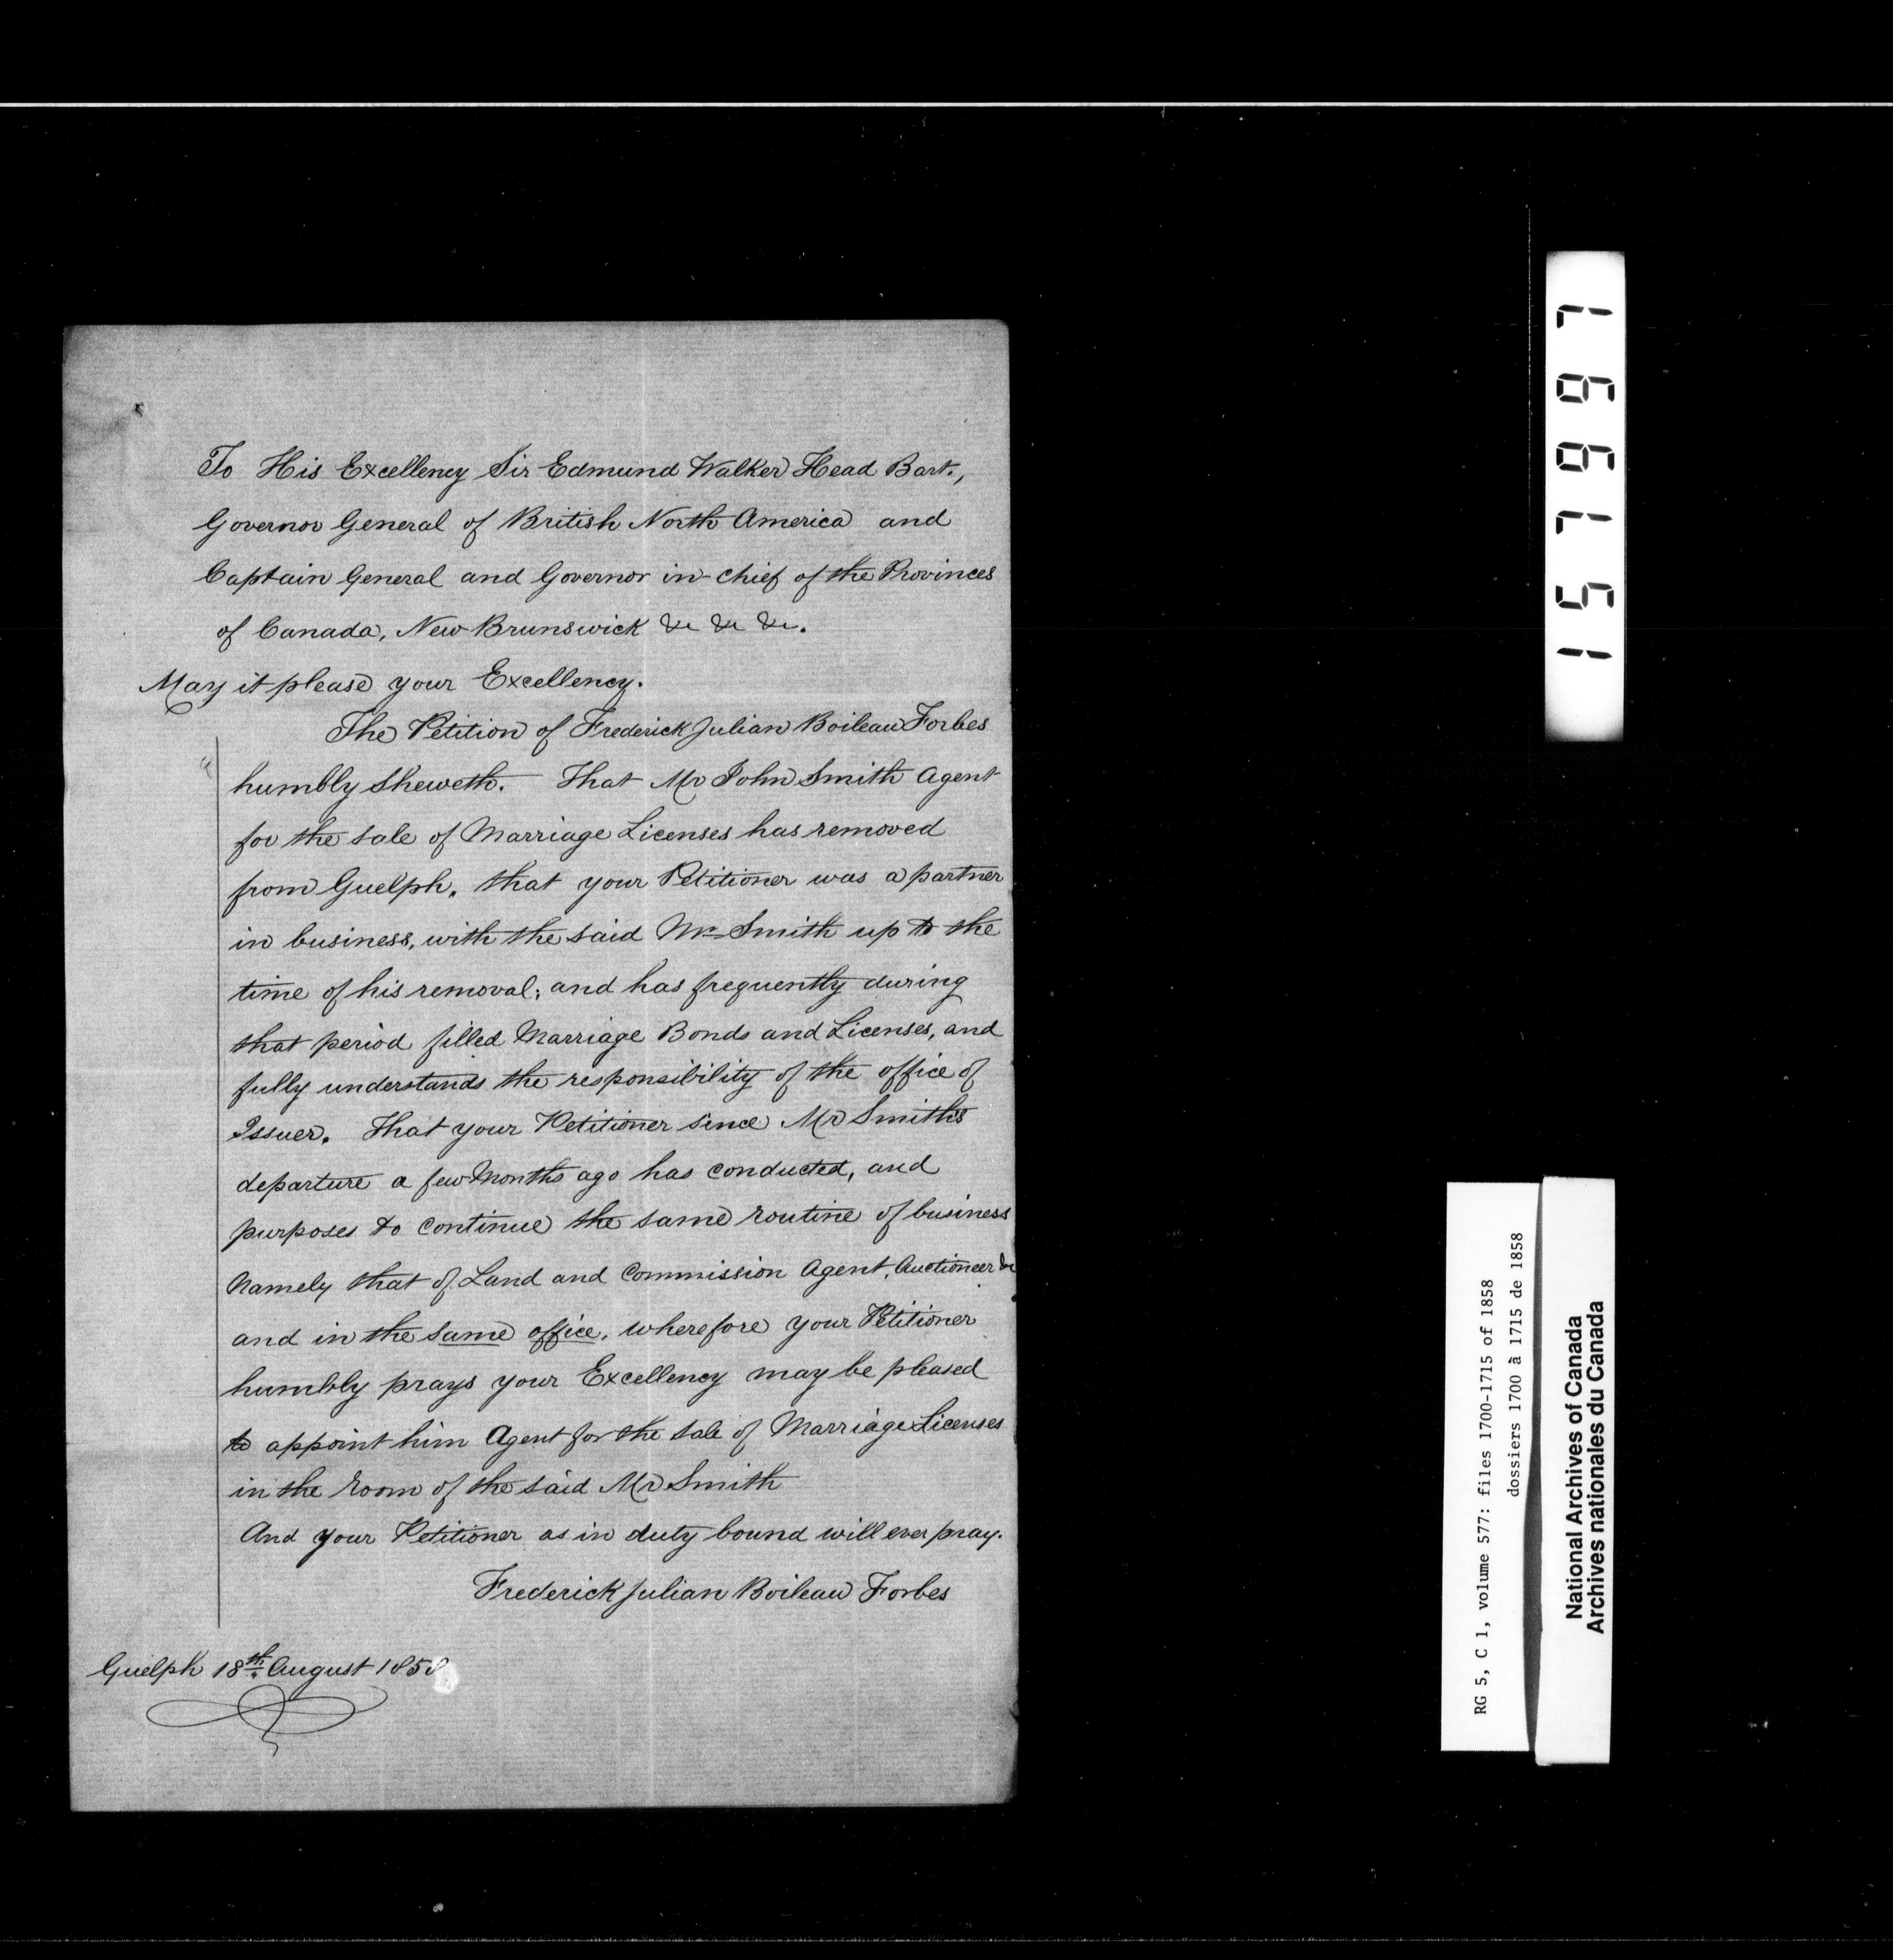 To His Excellency Sir Edmund Walker Head Bart.,
Governor General of British North America and
Captain General and Governor in-chief of the Provinces
of Canada, New Brunswick &c &c &c.
May it please your Excellency.
The Petition of Frederick Julian Boileau Forbes
humbly sheweth. That Mr John Smith Agent
for the sale of Marriage Licenses has removed
from Guelph, that your Petitioner was a partner
in business, with the said Mr Smith up to the
time of his removal; and has frequently during
that period filled Marriage Bonds and Licenses, and
fully understands the responsibility of the office of
Issuer. That your Petitioner since Mr Smith's
departure a few Months ago has conducted, and
purposes to continue the same routine of business
Namely that of Land and Commission Agent, Auctioneer &c
and in the same office, wherefore your Petitioner
humbly prays your Excellency may be pleased
to appoint him Agent for the sale of Marriage Licenses
in the room of the said Mr Smith
And your Petitioner as in duty bound will ever pray.
Frederick Julian Boileau Forbes
Guelph 18th August 1858
157997
RG 5, C 1, volume 577: files 1700-1715 of 1858
dossiers 1700 à 1715 de 1858
National Archives of Canada
Archives nationales du Canada